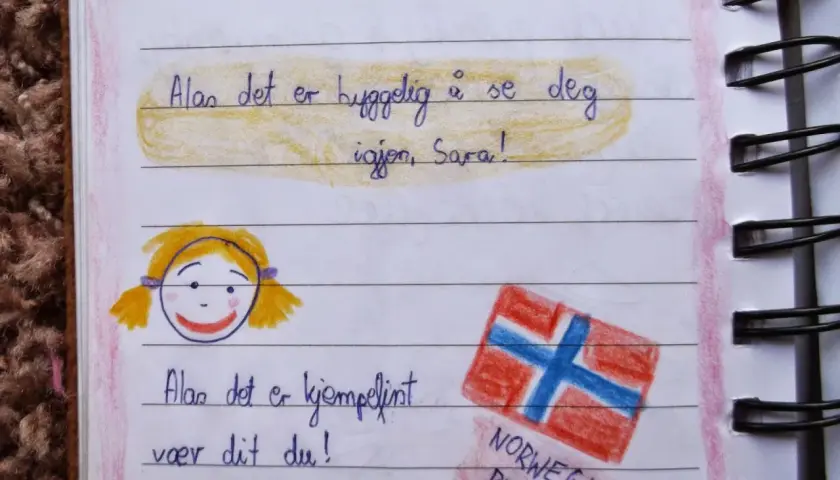 Alan det er hyggelig å se deg
igjen, Sara!
Alan det er kjempefint
vær dit du!